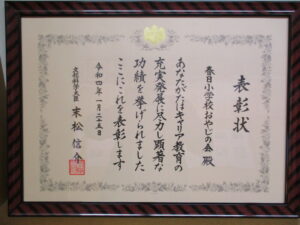 表彰状
春日小学校おやじの会 殿
あなたがたはキャリア教育の
充実発展に尽力し顕著な
功績を挙げられました
ここにこれを表彰します
令和四年一月二十五日
文部科学大臣 末松 信介